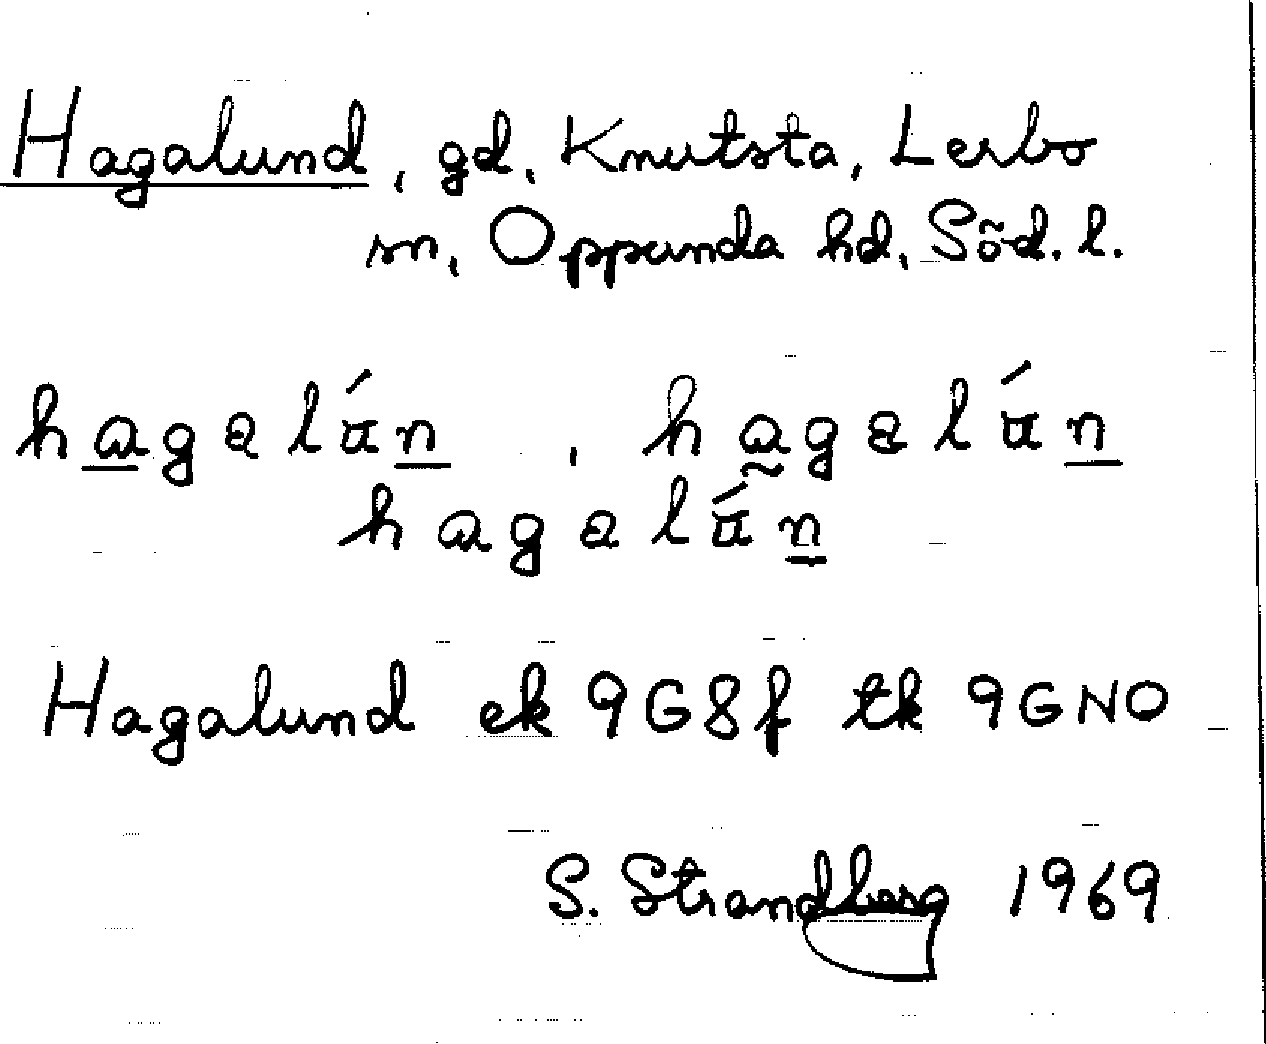 Hagalund, gd, Knutsta, Lerbo
sn, Oppunda hd, Söd. l.
hagalún, hagalún
hagalún
Hagalund ek 9G8f tk 9GNO
S. Strandberg 1969